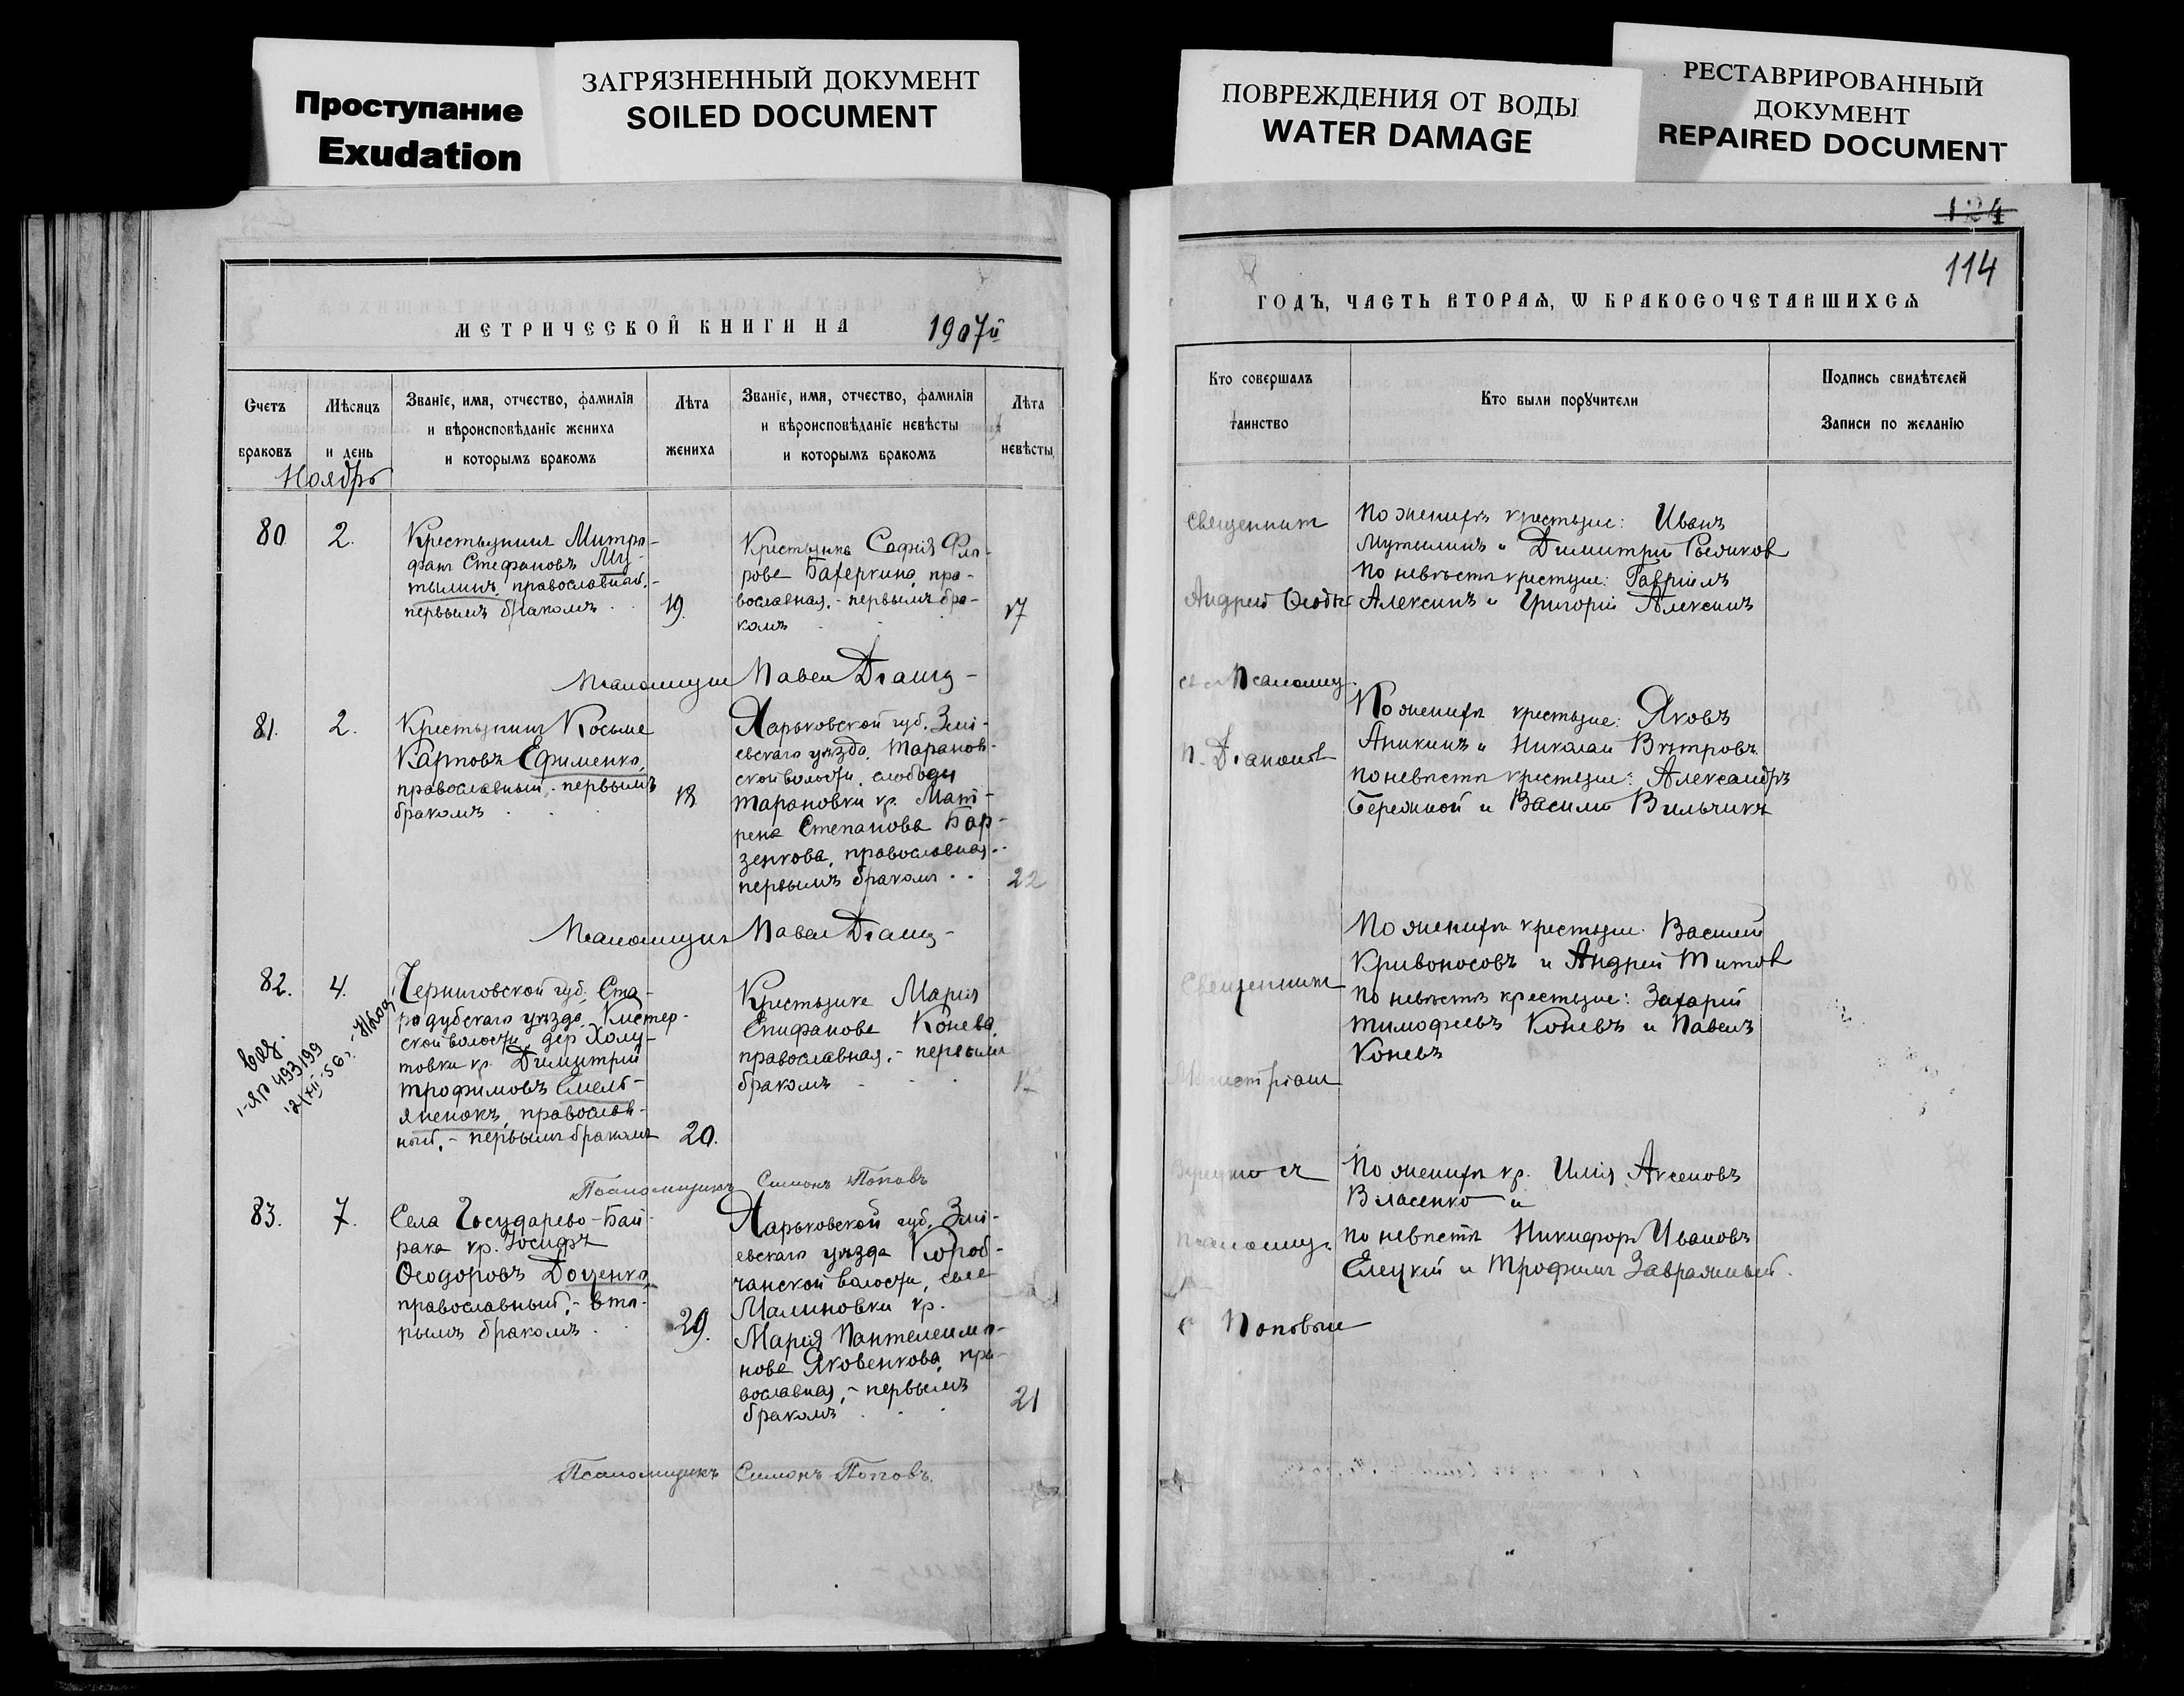 Проступание
Exudation
ЗАГРЯЗНЕННЫЙ ДОКУМЕНТ
SOILED DOCUMENT
ПОВРЕЖДЕНИЯ ОТ ВОДЫ
WATER DAMAGE
РЕСТАВРИРОВАННЫЙ
ДОКУМЕНТ
REPAIRED DOCUMENT
МЕТРИЧЕСКОЙ КНИГИ НА 1907й
Счетъ
браковъ
Мѣсяцъ
и день
Званіе, имя, отчество, фамилія
и вѣроисповѣданіе жениха
и которымъ бракомъ
Лѣта
жениха
Званіе, имя, отчество, фамилія
и вѣроисповѣданіе невѣсты
и которымъ бракомъ
Лѣта
невѣсты
Ноябрь
80
2.
Крестьянинъ Митро-
фанъ Стефановъ Му-
тылинъ, православный.-
первымъ бракомъ
19.
Крестьянка Софія Фло-
рова Бахеркина, пра-
вославная.- первымъ бра-
комъ
17
Псаломщикъ Павел
81.
2.
Крестьянинъ Косьма
Карповъ Ефименко,
православный.- первымъ
бракомъ
18
Харьковской губ. Змі-
евскаго уѣзда, Таранов-
ской волости, слободы
Тарановки кр. Мат-
рена Степанова Бор-
зенкова, православная.-
первымъ бракомъ
22
Псаломщикъ Павел
82.
4.
Черниговской губ. Ста-
родубскаго уѣзда, Кистер-
ской волости, дер. Холу-
товки кр. Димитрій
Трофимовъ Емель-
яненокъ, православ-
ный.- первымъ бракомъ
20.
Крестьянка Марія
Епифанова Конева,
православная.- первымъ
бракомъ
17
1-ЯР 493199
Псаломщикъ Симонъ Поповъ
83.
7.
Села Государево-Бай-
рака кр. Іосифъ
Ѳеодоровъ Доценко,
православный.- вто-
рымъ бракомъ
29.
Харьковской губ. Змі-
евскаго уѣзда Короб-
чанской волости, села
Малиновки кр.
Марія Пантелеимо-
нова Яковенкова, пра-
вославная.- первымъ
бракомъ
21
Псаломщикъ Симонъ Поповъ.
124
114
ГОДЪ, ЧАСТЬ ВТОРАЯ, Ѡ БРАКОСОЧЕТАВШИХСЯ
Кто совершалъ
таинство
Кто были порꙋчители
Подпись свидѣтелей
Записи по желанію
Священник
Андрей
Псаломщ.
П.
По женихѣ крестьяне: Иванъ
Мутылинъ и Димитрій
По невѣстѣ крестьяне: Гавріилъ
Алексинъ и Григорій Алексинъ
По женихѣ крестьяне: Яковъ
Аникинъ и Николай Вѣтровъ
По невѣстѣ крестьяне: Александръ
Бережной и Василій Вильчикъ
Священник
По женихѣ крестьяне: Василій
Кривоносовъ и Андрей Титов
По невѣстѣ крестьяне: Захарій
Тимофеевъ Коневъ и Павелъ
Коневъ
съ
Псаломщ.
Поповым
По женихѣ кр. Илія Аксеновъ
Власенко и
По невѣстѣ Никифоръ Ивановъ
Елецкій и Трофимъ Завражный.